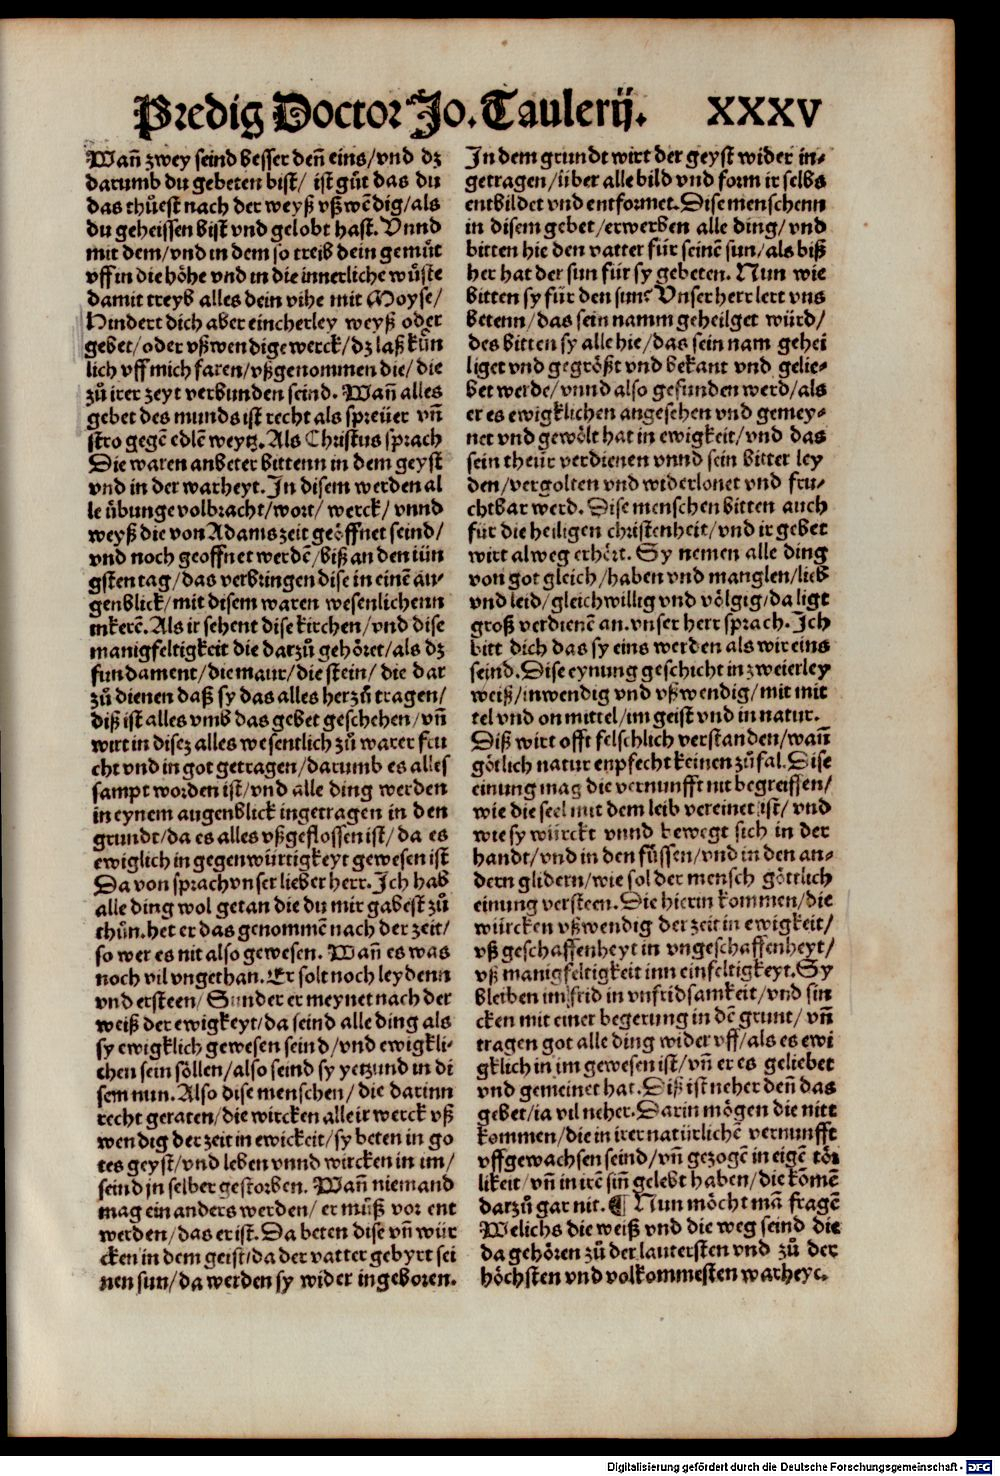 Predig Doctor Jo. Taulerij. XXXV
Wañ zwey seind besser deñ eins/vnd dz
darumb du gebeten bist/ ist gůt das du
das thůest nach der weyß vßwẽdig/als
du geheissen bist vnd gelobt hast. Vnnd
mit dem/vnd in dem so treib dein gemüt
vff in die höhe vnd in die innerliche wůste
damit treyb alles dein vihe mit Moyse/
Hindert dich aber eincherley weyß oder
gebet/oder vßwendige werck/dz laß kün
lich vff mich faren/vßgenommen die/die
zů irer zeyt verbunden seind. Wañ alles
gebet des munds ist recht als spreüer vñ
stro gegẽ edlẽ weytz. Als Christus sprach
Die waren anbeter bittenn in dem geyst
vnd in der warheyt. In disem werden al
le übunge volbracht/wort/ werck/ vnnd
weyß die von Adams zeit geöffnet seind/
vnd noch geoffnet werdẽ/biß an den iün
gsten tag/das verbringen dise in einẽ au-
genblick/mit disem waren wesenlichenn
inkerẽ. Als ir sehent dise kirchen/vnd dise
manigfeltigkeit die darzů gehöret/als dz
fundament/die maur/die stein/ die dar
zů dienen daß sy das alles herzů tragen/
diß ist alles vmb das gebet geschehen/vñ
wirt in disez alles wesentlich zů warer fru
cht vnd in got getragen/darumb es alles
sampt worden ist/vnd alle ding werden
in eynem augenblick ingetragen in den
grundt/da es alles vßgeflossen ist/da es
ewiglich in gegenwürtigkeyt gewesen ist
Da von sprach vnser lieber herr. Ich hab
alle ding wol getan die du mir gabest zů
thůn. het er das genommẽ nach der zeit/
so wer es nit also gewesen. Wañ es was
noch vil vngethan. Er solt noch leydenn
vnd ersteen/ Sunder er meynet nach der
weiß der ewigkeyt/da seind alle ding als
sy ewigklich gewesen seind/vnd ewigkli-
chen sein söllen/also seind sy yetzund in di
sem nun. Also dise menschen/ die darinn
recht geraten/die wircken alle ir werck vß
wendig der zeit in ewickeit/sy beten in go
tes geyst/vnd leben vnnd wircken in im/
seind jn selber gestorben. Wañ niemand
mag ein anders werden/ er můß vor ent
werden/das er ist. Da beten dise vñ wür
cken in dem geist/da der vatter gebyrt sei
nen sun/da werden sy wider ingeboren.
In dem grundt wirt der geyst wider in-
getragen/über alle bild vnd form ir selbs
entbildet vnd entformet. Dise menschenn
in disem gebet/erwerben alle ding/vnd
bitten hie den vatter für seinẽ sun/als biß
her hat der sun für sy gebeten. Nun wie
bitten sy für den sun? Vnser herr lert vns
betenn/das sein namm geheilget würd/
des bitten sy alle hie/das sein nam gehei
liget vnd gegrößt vnd bekant vnd gelie-
bet werde/vnnd also gefunden werd/als
er es ewigklichen angesehen vnd gemey-
net vnd gewölt hat in ewigkeit/vnd das
sein theür verdienen vnnd sein bitter ley
den/vergolten vnd widerlonet vnd fru-
chtbar werd. Dise menschen bitten auch
für die heiligen christenheit/vnd ir gebet
wirt alweg erhört. Sy nemen alle ding
von got gleich/haben vnd manglen/lieb
vnd leid/gleichwillig vnd völgig/da ligt
groß verdienẽ an. vnser herr sprach. Ich
bitt dich das sy eins werden als wir eins
seind. Dise eynung geschicht in zweierley
weiß/inwendig vnd vßwendig/mit mit
tel vnd on mittel/im geist vnd in natur.
Diß wirt offt felschlich verstanden/wañ
götlich natur enpfecht keinen zůfal. Dise
einung mag die vernunfft nit begreiffen/
wie die seel mit dem leib vereinet ist/ vnd
wie sy würckt vnnd bewegt sich in der
handt/vnd in den füssen/vnd in den an-
dern glidern/wie sol der mensch göttlich
einung versteen. Die hierin kommen/die
würcken vßwendig der zeit in ewigkeit/
vß geschaffenheyt in vngeschaffenheyt/
vß manigfeltigkeit inn einfeltigkeyt. Sy
bleiben im frid in vnfridsamkeit/vnd sin
cken mit einer begerung in dẽ grunt/ vñ
tragen got alle ding wider vff/als es ewi
gklich in im gewesen ist/vñ er es geliebet
vnd gemeinet hat. Diß ist neher deñ das
gebet/ia vil neher. Darin mögen die nitt
kommen/die in irer natürlichẽ vernunfft
vffgewachsen seind/vñ gezogẽ in eigẽ töt
likeit/vñ in irẽ siñ gelebt haben/die kömẽ
darzů gar nit. ¶ Nun möcht mã fragẽ
Welichs die weiß vnd die weg seind die
da gehören zů der lautersten vnd zů der
höchsten vnd volkommesten warheyt.
Digitalisierung gefördert durch die Deutsche Forschungsgemeinschaft - DFG